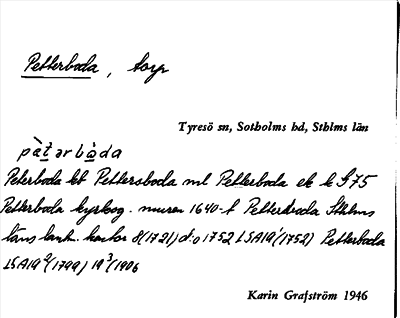 Petterboda, torp
Tyresö sn, Sotholms hd, Sthlms län
pä̀tərbɷ̀da
Peterboda kt Pettersboda ml Petterboda ek k S 75
Petterboda kyrkog. 1640-t Petterboda Sthlms
läns lantm. kontor 8(1721) d:o 1752 LSA19¹(1752) Petterboda
LSA19²(1799) 19³(1906
Karin Grafström 1946